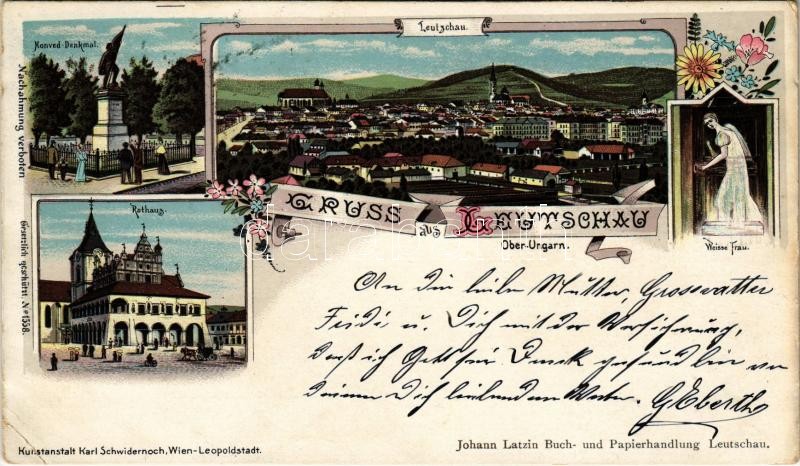 Leutschau.
Honved-Denkmal.
Nachahmung verboten
Gesetzlich geschützt. No 1558.
Rathaus.
GRUSS aus LEUTSCHAU
Ober-Ungarn.
Weisse Frau.
An Die liebe Mutter, Grossvatter
Feidi u. Dich mit der Versicherung,
daß ich Gott sei Dank gesund bin
Deinen Dich liebenden
GEberth
Kunstanstalt Karl Schwidernoch, Wien-Leopoldstadt.
Johann Latzin Buch- und Papierhandlung Leutschau.
darabanth